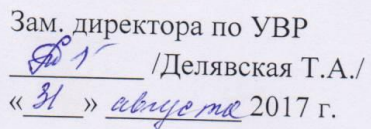 Зам. директора по УВР
/Делявская Т.А./
«31» августа 2017 г.